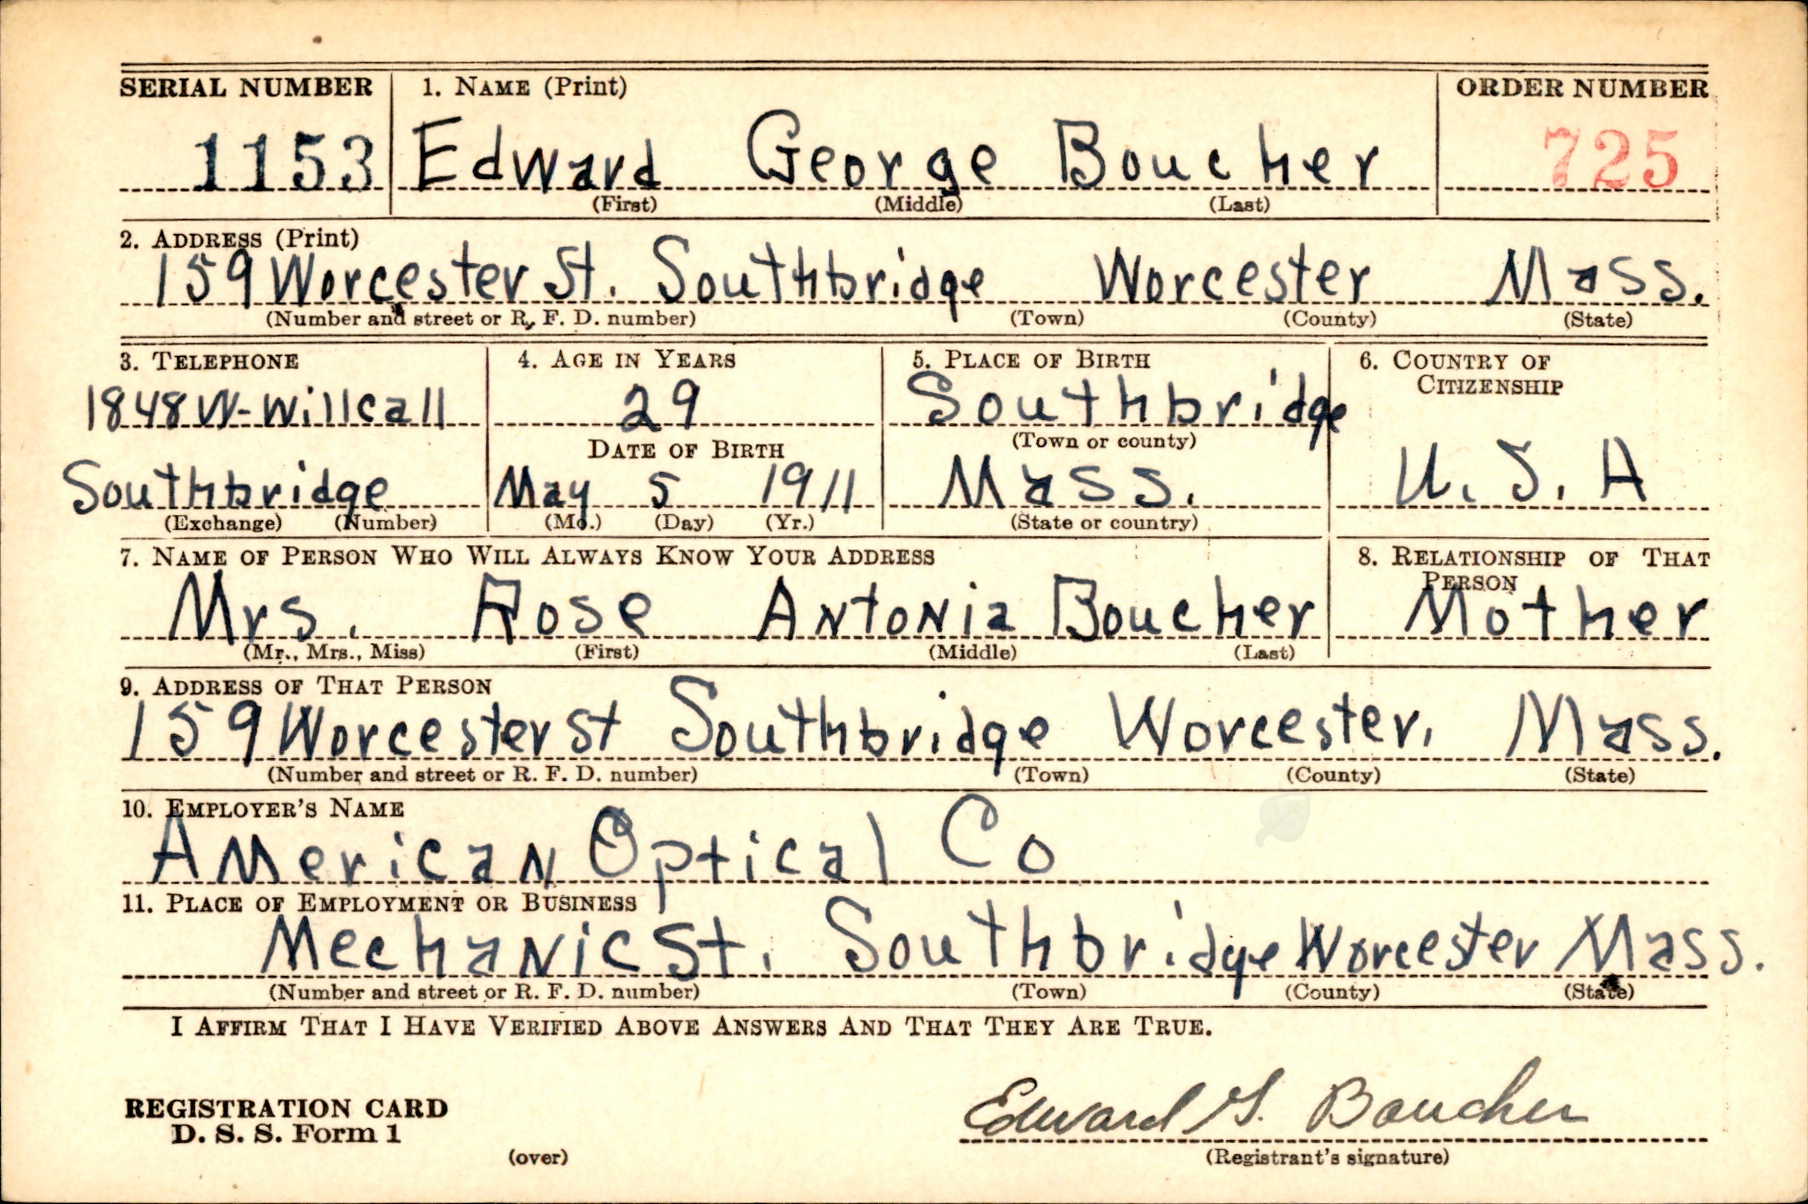 SERIAL NUMBER 1. NAME (Print) ORDER NUMBER
1153 Edward George Boucher 725
(First) (Middle) (Last)
2. ADDRESS (Print)
159 Worcester St. Southbridge Worcester Mass.
(Number and street or R. F. D. number) (Town) (County) (State)
3. TELEPHONE 4. AGE IN YEARS 5. PLACE OF BIRTH 6. COUNTRY OF
CITIZENSHIP
1848W-Willcall 29 Southbridge
DATE OF BIRTH (Town or county)
Southbridge May 5 1911 Mass. U. S. A
(Exchange) (Number) (Mo.) (Day) (Yr.) (State or country)
7. NAME OF PERSON WHO WILL ALWAYS KNOW YOUR ADDRESS 8. RELATIONSHIP OF THAT
PERSON
Mrs. Rose Antonia Boucher Mother
(Mr., Mrs., Miss) (First) (Middle) (Last)
9. ADDRESS OF THAT PERSON
159 Worcester St Southbridge Worcester, Mass.
(Number and street or R. F. D. number) (Town) (County) (State)
10. EMPLOYER'S NAME
American Optical Co
11. PLACE OF EMPLOYMENT OR BUSINESS
Mechanic St. Southbridge Worcester Mass.
(Number and street or R. F. D. number) (Town) (County) (State)
I AFFIRM THAT I HAVE VERIFIED ABOVE ANSWERS AND THAT THEY ARE TRUE.
REGISTRATION CARD
D. S. S. Form 1
Edward G. Boucher
(over) (Registrant's signature)